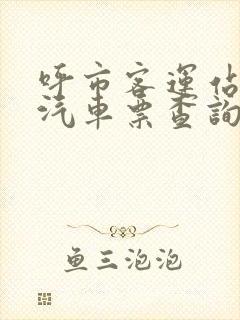 呼市客運佔
汽車票查詢
鱼三泡泡